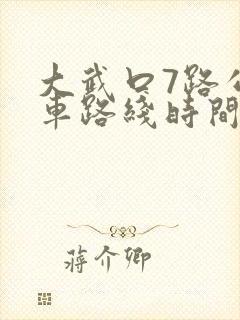 大武口7路公
車路綫時間
蔣介卿